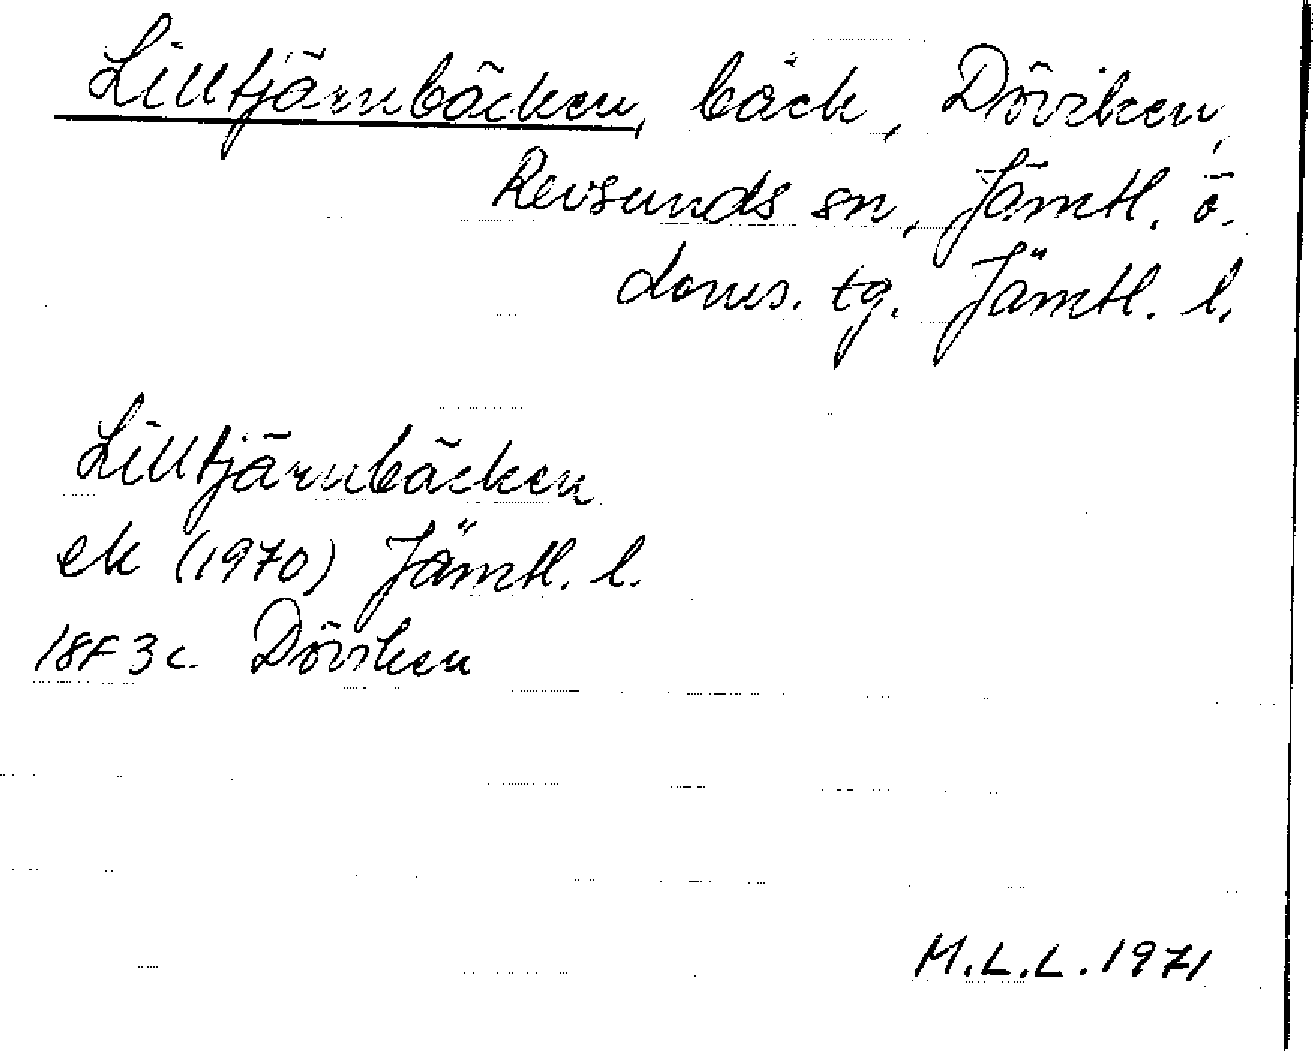 Lilltjärnbäcken, bäck, Döviken,
Revsunds sn, Jämtl. ö.
doms. tg. Jämtl. l.
Lilltjärnbäcken
ek (1970) Jämtl. l.
18F 3c Döviken
M.L.L. 1971